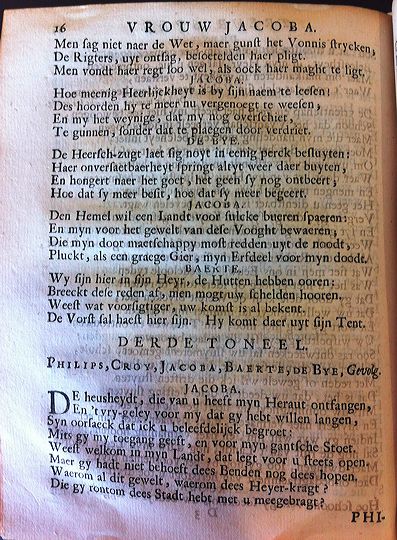 16 VROUW JACOBA.
Men sag niet naer de Wet, maer gunst het Vonnis strycken,
De Rigters, uyt ontsag, besoetelden haer pligt.
Men vondt haer regt soo wel, als oock haer maght te ligt.
JACOBA.
Hoe meenig Heerlijckheyt is by sijn naem te leesen!
Des hoorden hy te meer nu vergenoegt te weesen,
En my het weynige, dat my nog overschiet,
Te gunnen, sonder dat te plaegen door verdriet.
DE BYE.
De Heersch-zugt laet sig noyt in eenig perck besluyten:
Haer onversaetbaerheyt springt altyt weer daer buyten,
En hongert naer het goet, het geen sy nog ontbeert,
Hoe dat sy meer besit, hoe dat sy meer begeert.
JACOBA.
Den Hemel wil een Landt voor sulcke bueren spaeren:
En myn voor het gewelt van dese Vooght bewaeren,
Die myn door maetschappy most redden uyt de noodt,
Pluckt, als een graege Gier, myn Erfdeel voor myn doodt.
BAERTE.
Wy sijn hier in sijn Heyr, de Hutten hebben ooren:
Breeckt dese reden af, men mogt uw schelden hooren.
Weest wat voorsigtiger, uw komst is al bekent.
De Vorst sal haest hier sijn. Hy komt daer uyt sijn Tent.
DERDE TONEEL.
PHILIPS, CROY, JACOBA, BAERTE, DE BYE, Gevolg.
JACOBA.
DE heusheydt, die van u heeft myn Heraut ontfangen,
En 't vry-geley voor my dat gy hebt willen langen,
Syn oorsaeck dat ick u beleefdelijck begroet:
Mits gy my toegang geeft, en voor myn gantsche Stoet.
Weest welkom in myn Landt, dat legt voor u steets open.
Maer gy hadt niet behoeft dees Benden nog dees hopen.
Waerom al dit gewelt, waerom dees Heyer-kragt?
Die gy rontom dees Stadt hebt met u meegebragt?
PHI-